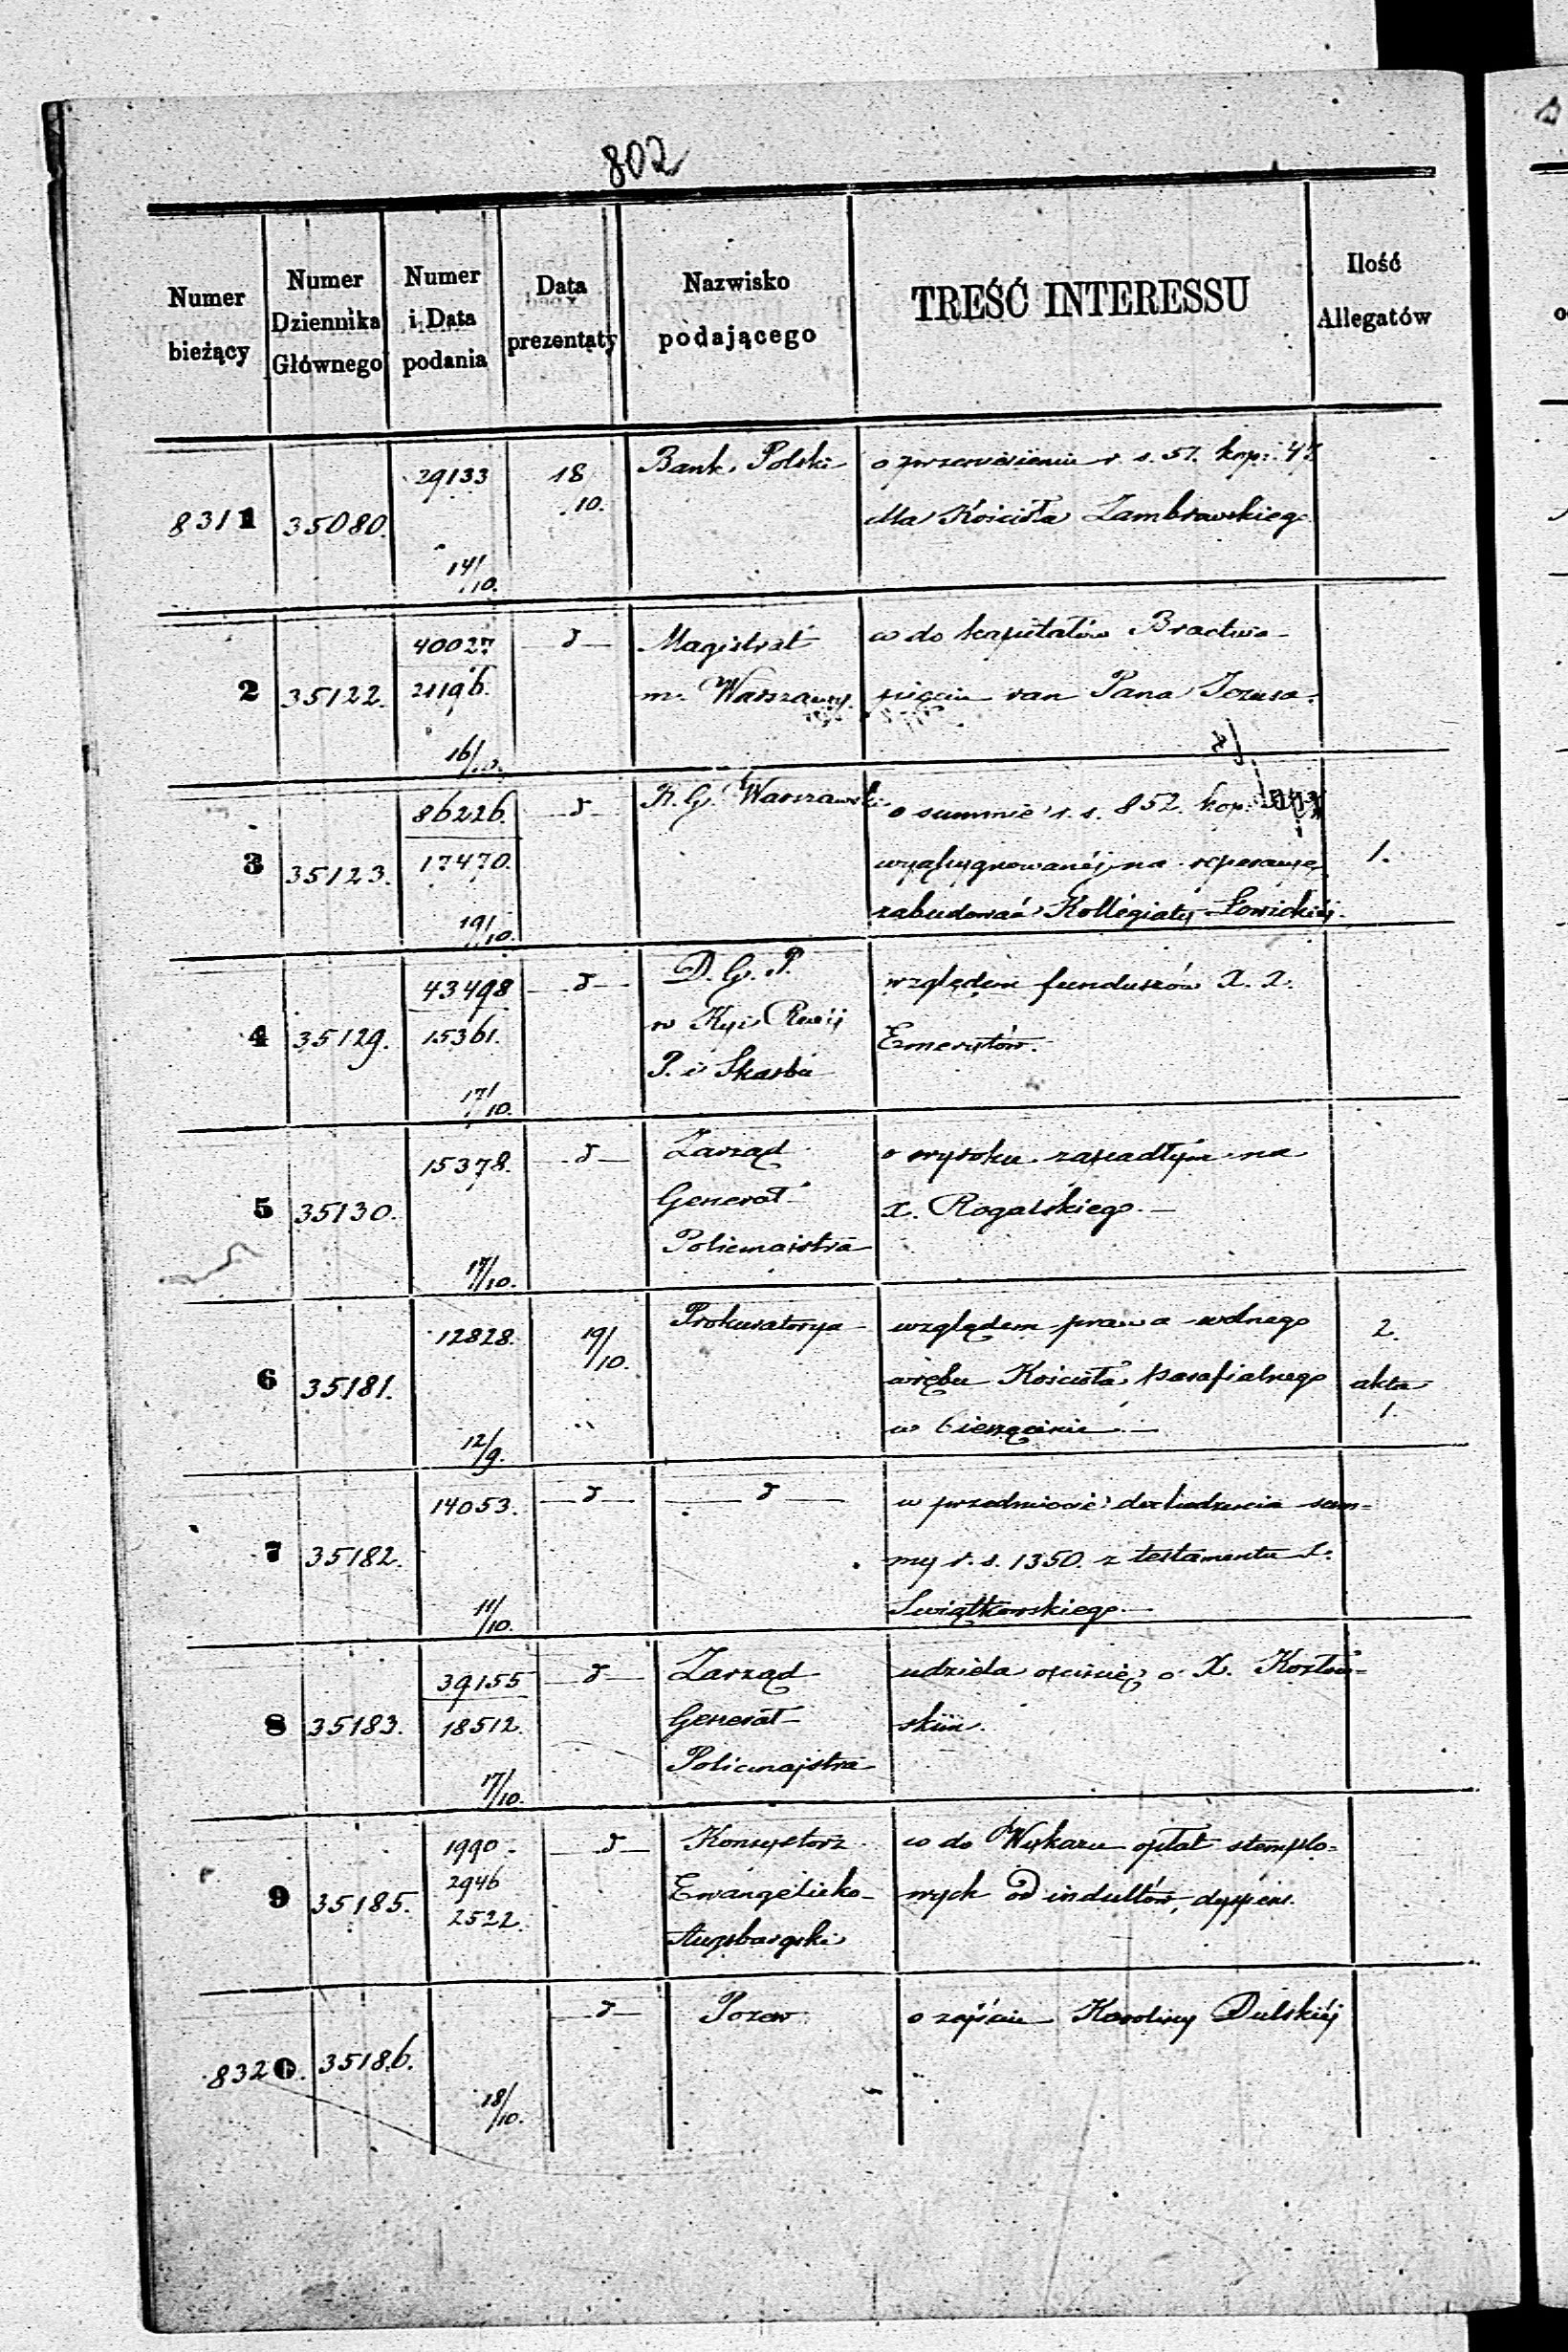 802
Numer bieżący
Numer Dziennika Głównego
Numer i Data podania
Data prezentaty
Nazwisko podającego
TREŚĆ INTERESSU
Ilość Allegatów
8311 35080. 29133 14/10. 18/10. Bank Polski o przeniesieniu r. s. 57. kop: 47
dla Kościoła Zambrowskiego
2 35122. 40027 21196. 16/10. d Magistrat w do kapitałów Bractwa
m. Warszawy. pięciu ran Pana Jezusa.
3 35123. 86226. 17470. 19/10. d R. G. Warszawski o summie r. s. 852. kop: 1.
wyassygnowanéj na reperacyę
zabudowań Kollegiaty Łowickiéj.
4 35129. 43498 15361. 17/10. d D. G. P. względem funduszów X. X.
w Kyi Rwéj Emerytów.
P. i Skarbu
5 35130. 15378. 17/10. d Zarząd o wyroku zapadłym na
Generał X. Rogalskiego.
Policmajstra
6 35181. 12828. 12/9. 19/10. Prokuratorya względem prawa wolnego 2.
wrębu Kościoła parafialnego akta
w 1.
7 35182. 14053. 11/10. d d w przedmiocie dochodzenia sum-
my r. s. 1350. z testamentu X.
Swiątkowskiego
8 35183. 39155 18512. 17/10. d Zarząd udziela opinię o X. Kozłow-
Generał skim.
Policmajstra
9 35185. 1990. 2946 2522. d Konsystorz w do Wykazu opłat stemplo-
Ewangelicko- wych od indultów, dyspens.
Augsburgski
8320. 35186. 18/10. d Pozew o zajście Karoliny Dulskiéj